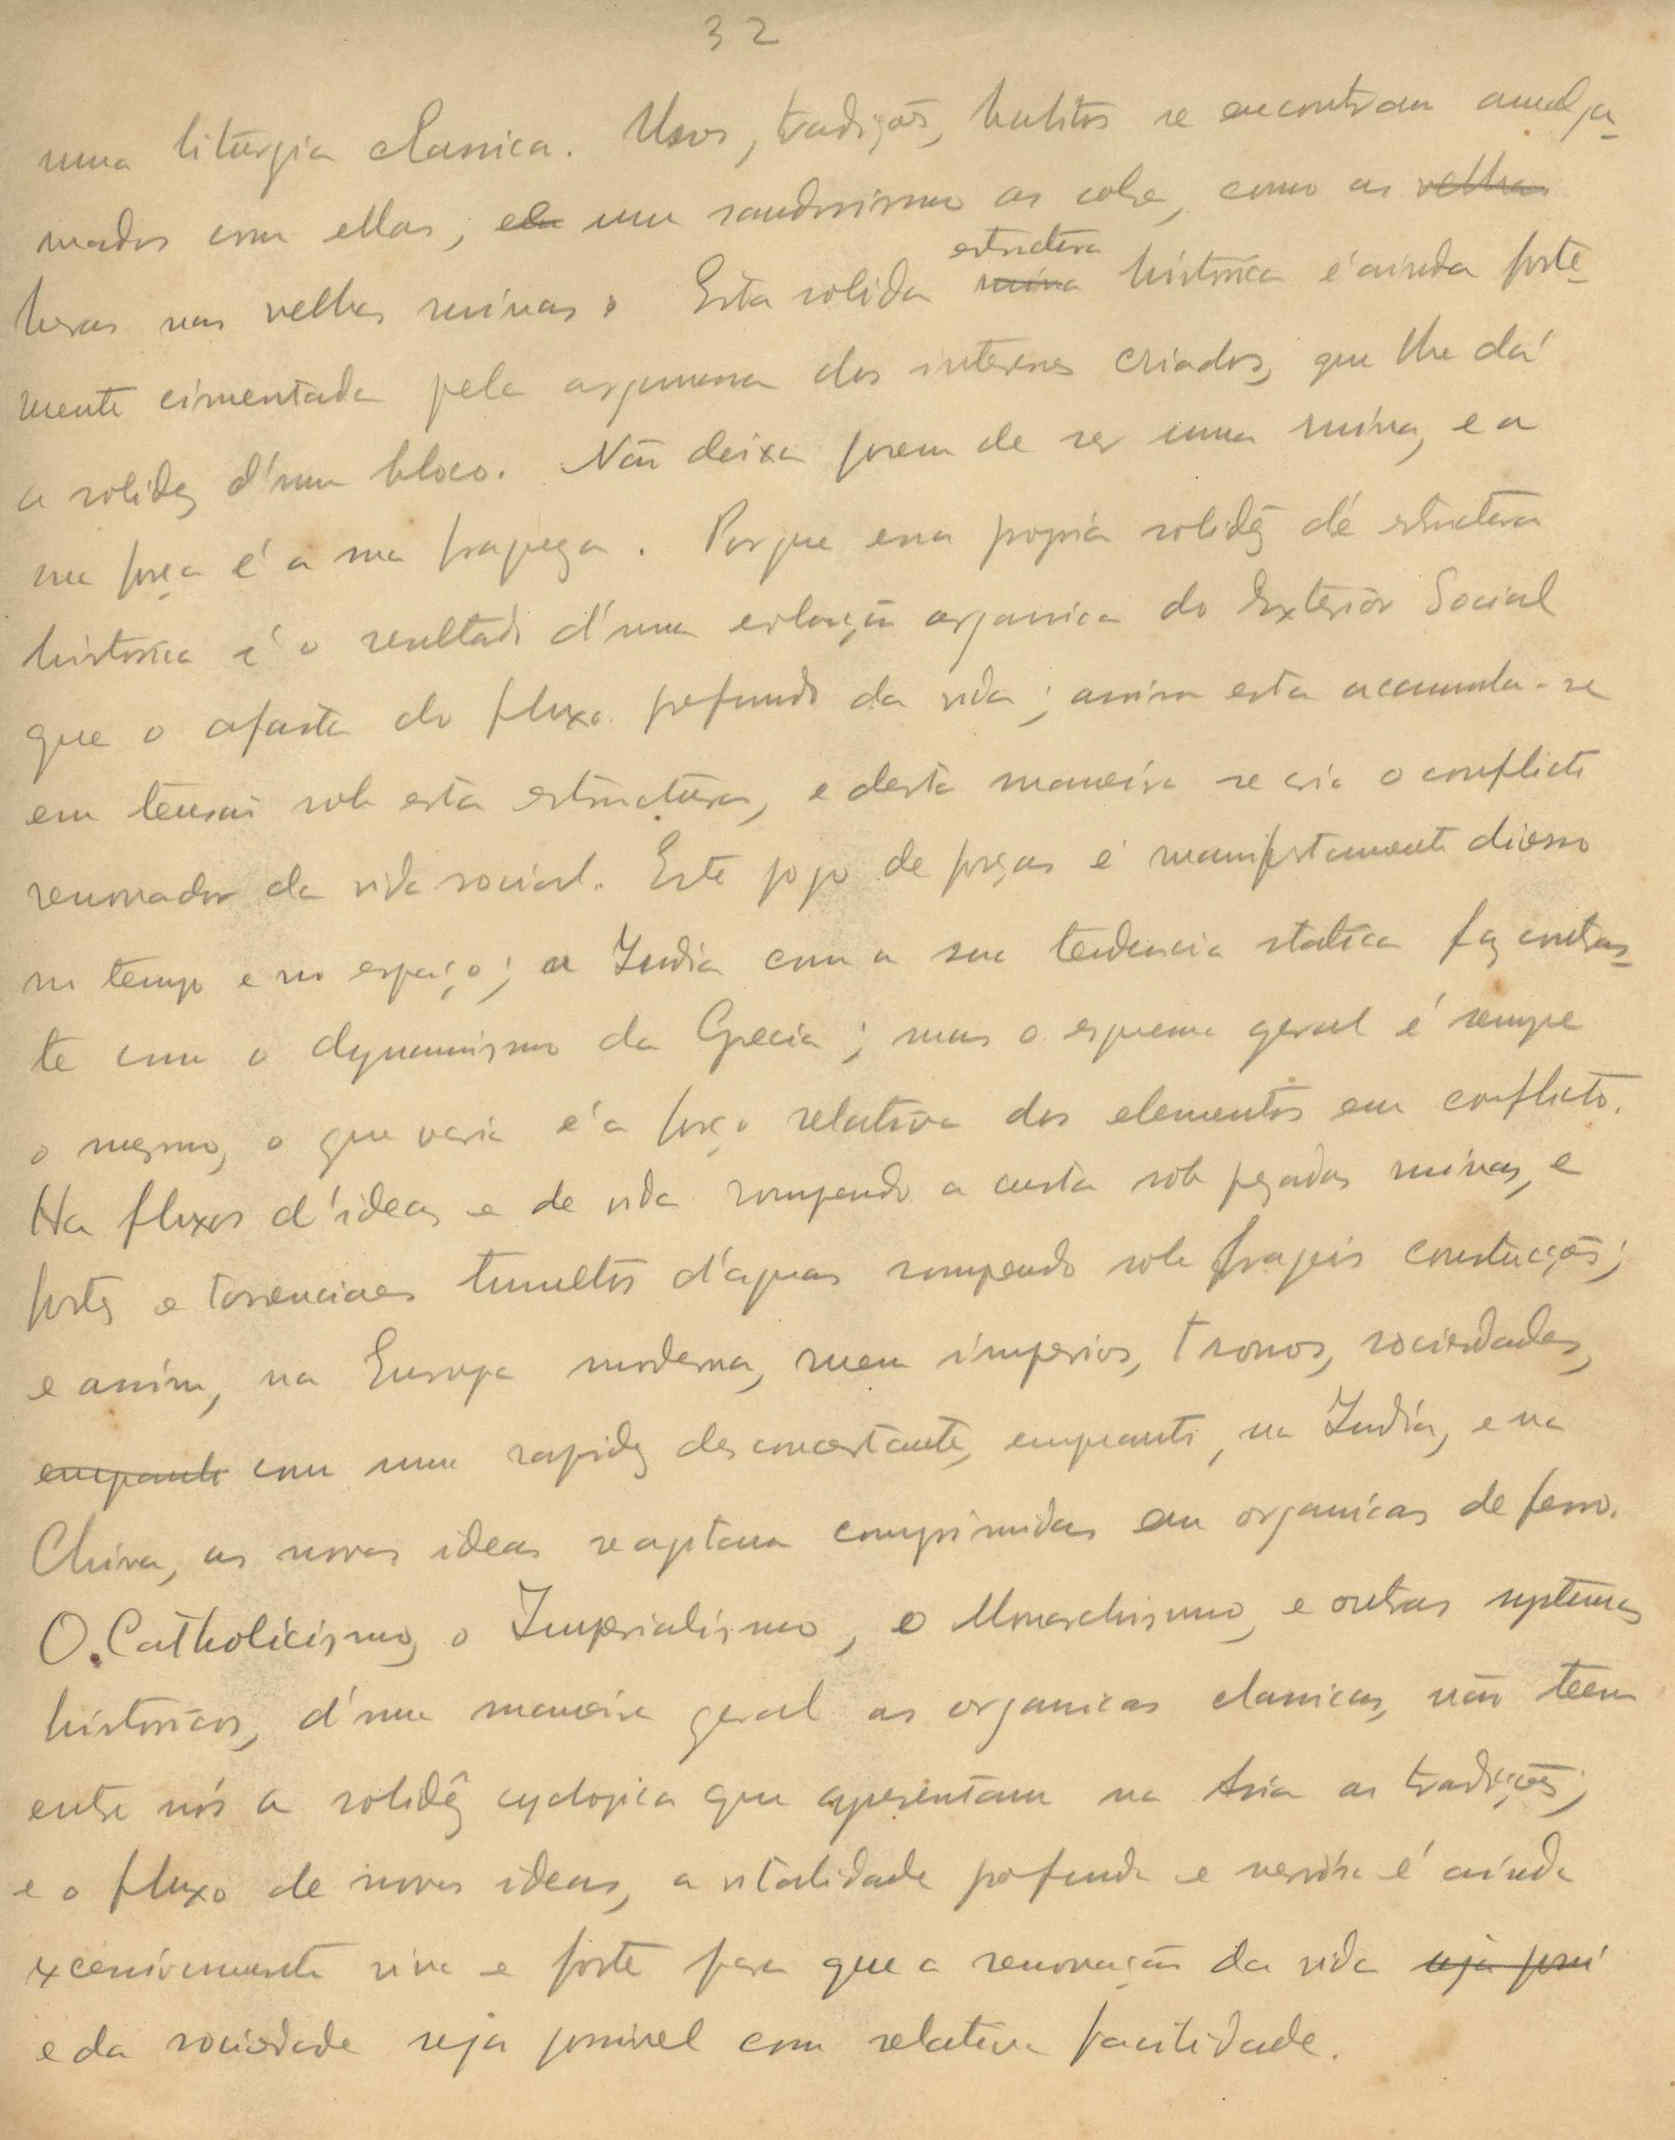 32
uma liturgia classica. Usos, tradições, habitos se encontram amalga-
mados com ellas; ~~ela~~ um saudosismo as cobre, como as ~~velhas~~
heras nas velhas ruinas. Esta solida ~~ruina~~ estructura historica é ainda forte-
mente cimentada pela argamassa dos interesses criados, que lhe dá
a solidez d'um bloco. Não deixa porem de ser uma ruina, e a
sua força é a sua fraqueza. Porque essa propria solidêz de estructura
historica é o resultado d'uma organica do Exterior Social
que o afasta do fluxo profundo da vida; assim esta accumula-se
em tensão sob esta estructura, e desta maneira se cria o conflicto
renovador da vida social. Este jogo de forças é manifestamente diverso
no tempo e no espaço; a India com a sua tendencia statica faz contras-
te com o dynamismo da Grecia; mas o esquema geral é sempre
o mesmo, o que varia é a força relativa dos elementos em conflicto.
Ha fluxos d'ideas e de vida rompendo a custo sob pesadas ruinas, e
fortes e torrenciaes tumultos d'aguas rompendo sob frageis construcções;
e assim, na Europa moderna, ruem imperios, tronos, sociedades,
~~emquanto~~ com uma rapidez desconcertante, emquanto, na India, e na
China, as novas ideas se agitam comprimidas em organicas de ferro.
O Catholicismo, o Imperialismo, o Monarchismo, e outros systemas
historicos, d'uma maneira geral as organicas classicas, não teem
entre nós a solidêz cyclopica que apresentam na Asia as tradições;
e o fluxo de novas ideas, a vitalidade profunda e é ainda
excessivamente viva e forte para que a renovação da vida ~~seja possi~~
e da sociedade seja possivel com relativa facilidade.